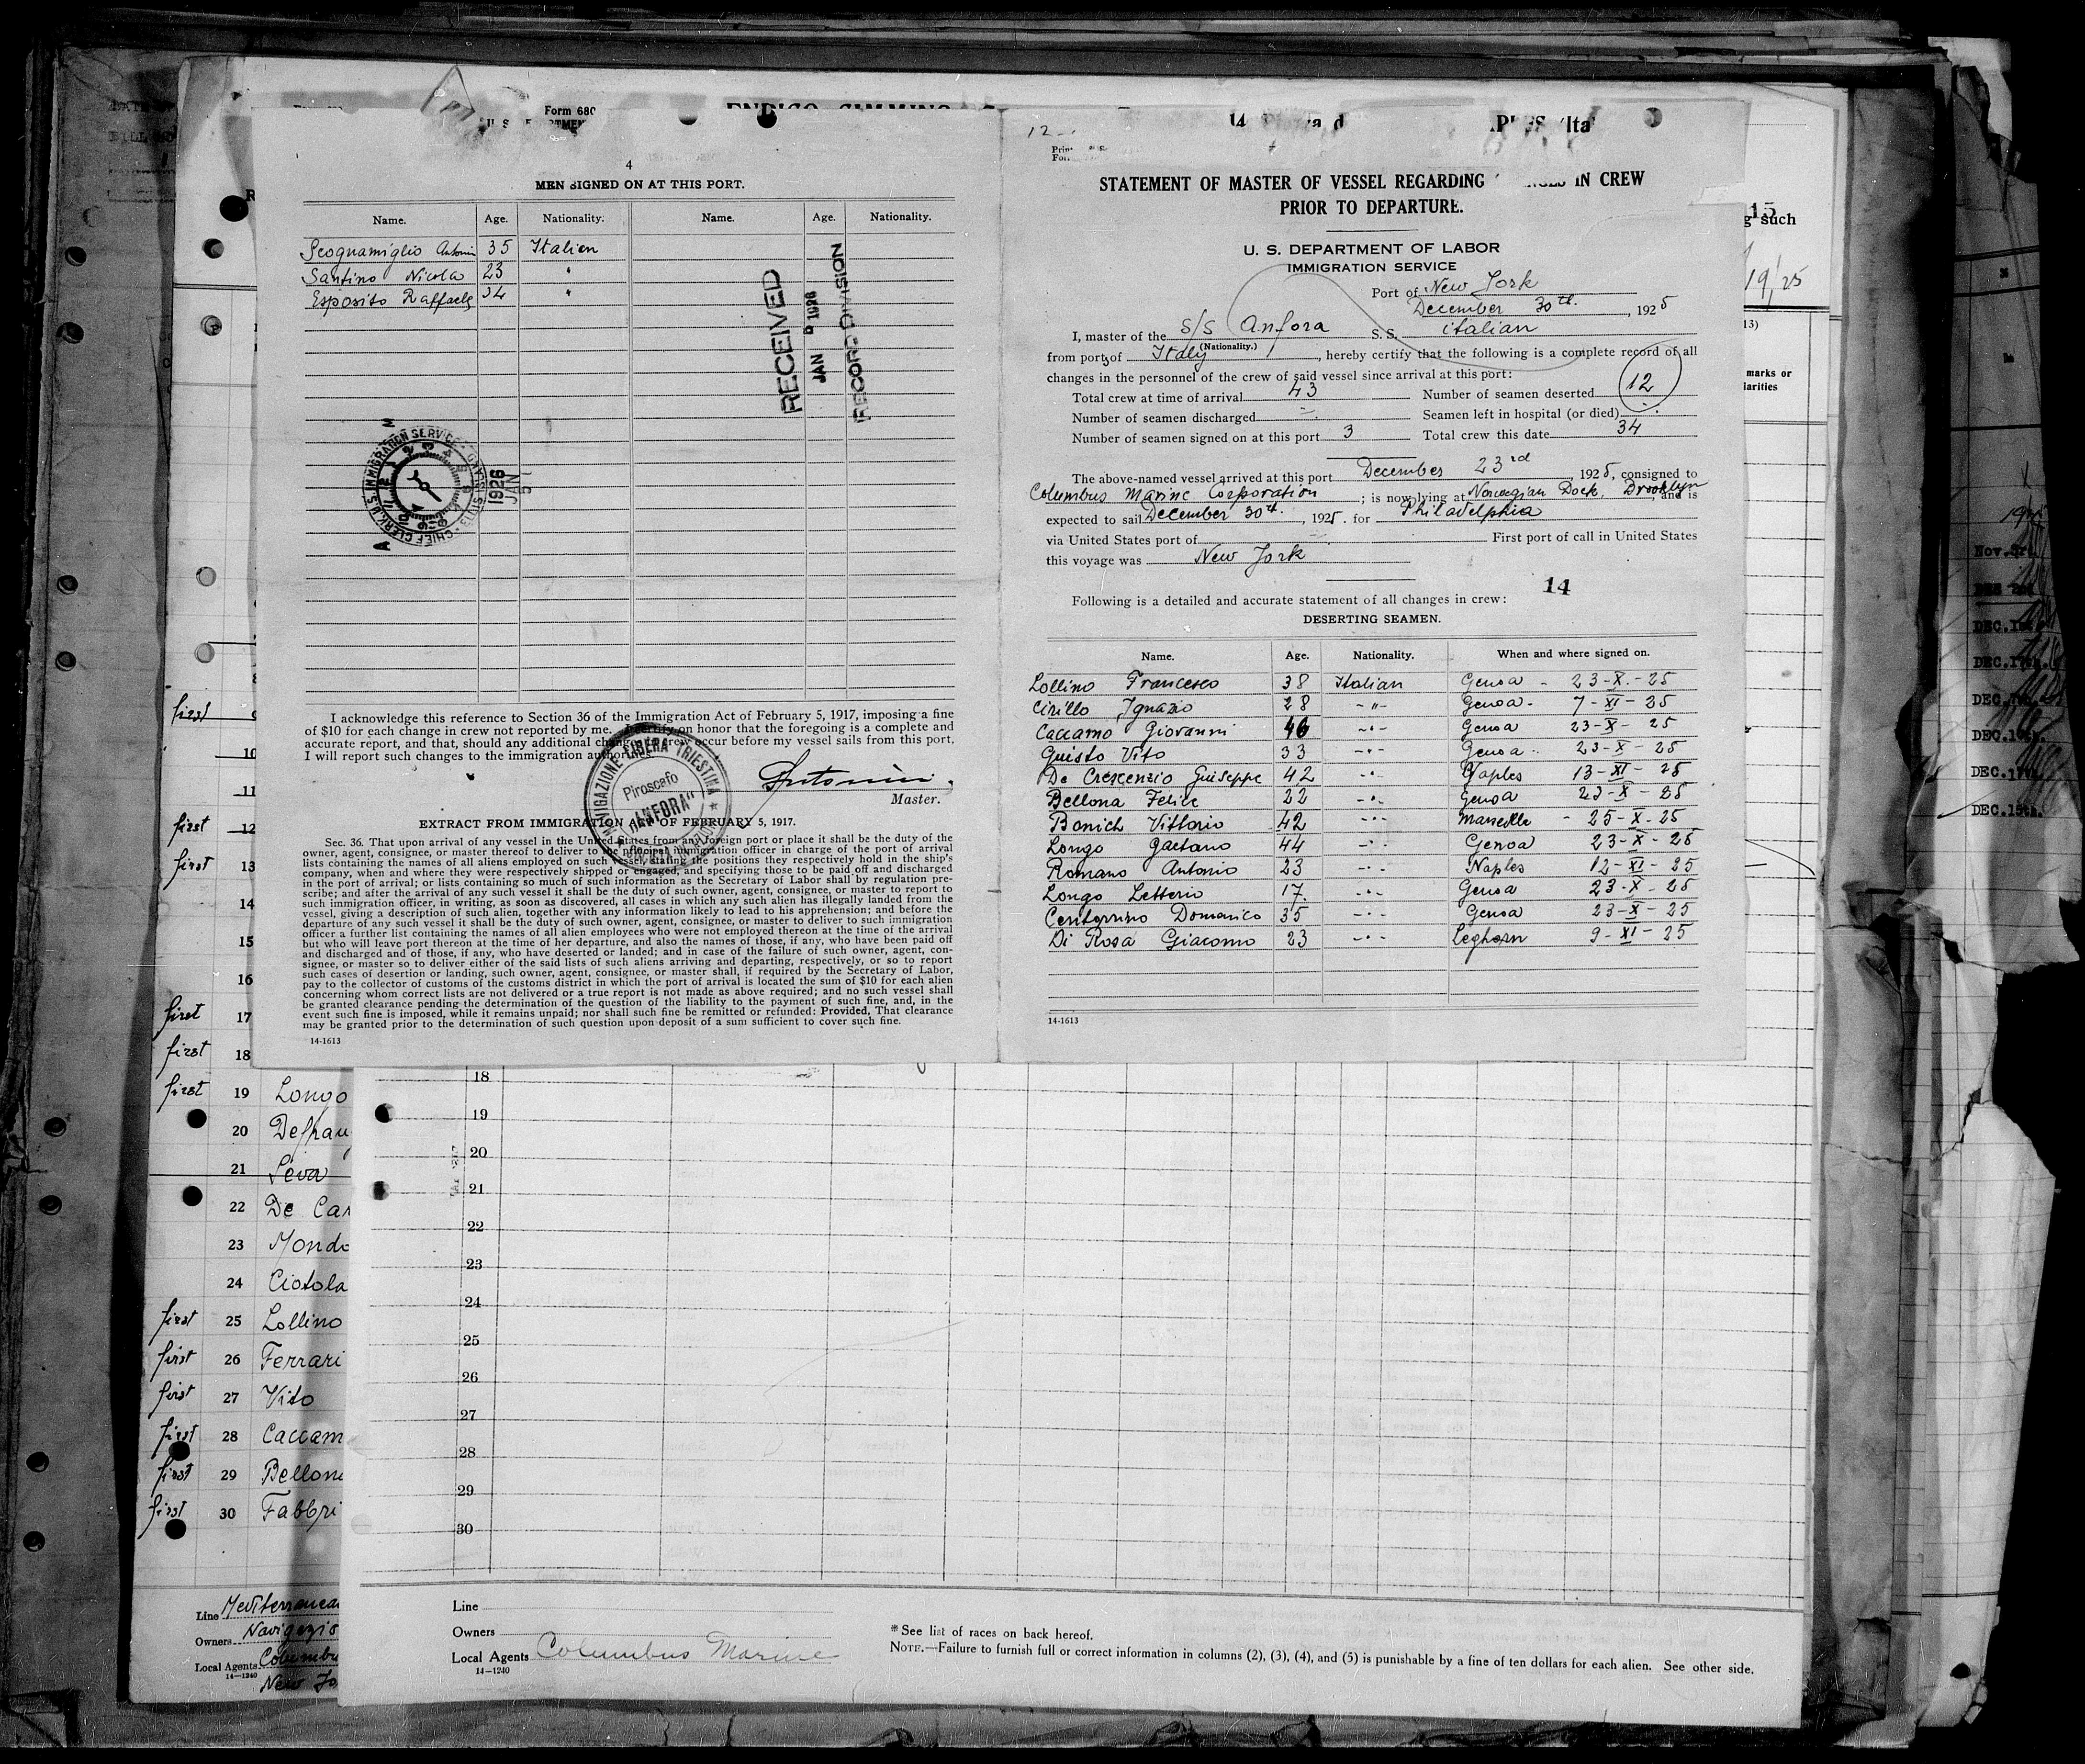 Form 680
4
MEN SIGNED ON AT THIS PORT.
Name. Age. Nationality. Name. Age. Nationality.
Scognamiglio Antonin 35 Italian
Santino Nicola 23 "
Esposito Raffaele 34 "
RECEIVED
JAN 6 1926
RECORD DIVISION
CHIEF CLERK, U.S. IMMIGRATION SERVICE
1926
JAN
5
A M
I acknowledge this reference to Section 36 of the Immigration Act of February 5, 1917, imposing a fine
of $10 for each change in crew not reported by me. I certify on honor that the foregoing is a complete and
accurate report, and that, should any additional changes in crew occur before my vessel sails from this port,
I will report such changes to the immigration authorities.
Antonini
Master.
NAVIGAZIONE LIBERA TRIESTINA
Piroscafo
"ANFORA"
EXTRACT FROM IMMIGRATION ACT OF FEBRUARY 5, 1917.
Sec. 36. That upon arrival of any vessel in the United States from any foreign port or place it shall be the duty of the
owner, agent, consignee, or master thereof to deliver to the principal immigration officer in charge of the port of arrival
lists containing the names of all aliens employed on such vessel, stating the positions they respectively hold in the ship's
company, when and where they were respectively shipped or engaged, and specifying those to be paid off and discharged
in the port of arrival; or lists containing so much of such information as the Secretary of Labor shall by regulation pre-
scribe; and after the arrival of any such vessel it shall be the duty of such owner, agent, consignee, or master to report to
such immigration officer, in writing, as soon as discovered, all cases in which any such alien has illegally landed from the
vessel, giving a description of such alien, together with any information likely to lead to his apprehension; and before the
departure of any such vessel it shall be the duty of such owner, agent, consignee, or master to deliver to such immigration
officer a further list containing the names of all alien employees who were not employed thereon at the time of the arrival
but who will leave port thereon at the time of her departure, and also the names of those, if any, who have been paid off
and discharged and of those, if any, who have deserted or landed; and in case of the failure of such owner, agent, con-
signee, or master so to deliver either of the said lists of such aliens arriving and departing, respectively, or so to report
such cases of desertion or landing, such owner, agent, consignee, or master shall, if required by the Secretary of Labor,
pay to the collector of customs of the customs district in which the port of arrival is located the sum of $10 for each alien
concerning whom correct lists are not delivered or a true report is not made as above required; and no such vessel shall
be granted clearance pending the determination of the question of the liability to the payment of such fine, and, in the
event such fine is imposed, while it remains unpaid; nor shall such fine be remitted or refunded: Provided, That clearance
may be granted prior to the determination of such question upon deposit of a sum sufficient to cover such fine.
14-1613
STATEMENT OF MASTER OF VESSEL REGARDING IN CREW
PRIOR TO DEPARTURE.
U. S. DEPARTMENT OF LABOR
IMMIGRATION SERVICE
Port of New York
December 30th. , 1925
I, master of the s/s Anfora S. S. italian
(Nationality.)
from ports of Italy , hereby certify that the following is a complete record of all
changes in the personnel of the crew of said vessel since arrival at this port:
Total crew at time of arrival 43 Number of seamen deserted 12
Number of seamen discharged Seamen left in hospital (or died)
Number of seamen signed on at this port 3 Total crew this date 34
The above-named vessel arrived at this port December 23rd , 1925, consigned to
Columbus Marine Corporation ; is now lying at Norwegian Dock, Brooklyn and is
expected to sail December 30th. , 1925. for Philadelphia
via United States port of First port of call in United States
this voyage was New York
14
Following is a detailed and accurate statement of all changes in crew:
DESERTING SEAMEN.
Name. Age. Nationality. When and where signed on.
Lollino Francesco 38 Italian Genoa - 23-X.-25
Cirillo Ignazio 28 -"- Genoa - 7-XI-25
Caccamo Giovanni 46 -"- Genoa 23-X-25
Guisto Vito 33 -"- Genoa - 23-X-25
De Crescenzio Guiseppe 42 -"- Naples 13-XI-25
Bellona Felice 22 -"- Genoa 23-X-25
Bonich Vittorio 42 -"- Marseille - 25-X-25
Longo Gaetano 44 -"- Genoa 23-X-25
Romano Antonio 23 -"- Naples 12-XI-25
Longo Letterio 17. -"- Genoa 23-X-25
Centorrino Domenico 35 -"- Genoa 23-X-25
Di Rosa Giacomo 23 -"- Leghorn 9-XI-25
14-1613
15
g such
19/25
13)
marks or
larities
Nov.3rd.
DEC.17th.
DEC.17th.
DEC.15th.
first
10
11
first 12
first 13
14
15
16
first 17
first 18
first 19 Longo
20 Defran
21 Seva
22 De Car
23 Mondo
24 Ciotola
first 25 Lollino
first 26 Ferrari
first 27 Vito
first 28 Caccam
first 29 Bellona
first 30 Fabbri
Line Mediterranean
Owners Navigazio
Local Agents Columbu
14-1240
New Yo
18
19
20
21
22
23
24
25
26
27
28
29
30
Line
Owners
Local Agents Columbus Marine
14-1240
*See list of races on back hereof.
NOTE.—Failure to furnish full or correct information in columns (2), (3), (4), and (5) is punishable by a fine of ten dollars for each alien. See other side.